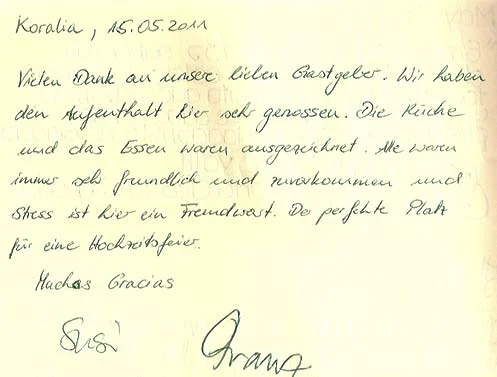 Koralia, 15.05.2011
Vielen Dank an unsere lieben Gastgeber. Wir haben
den Aufenthalt hier sehr genossen. Die Küche
und das Essen waren ausgezeichnet. Alle waren
immer sehr freundlich und zuvorkommen und
Stress ist hier ein Fremdwort. Der perfekte Platz
für eine Hochzeitsfeier.
Muchas Gracias
Susi Franz